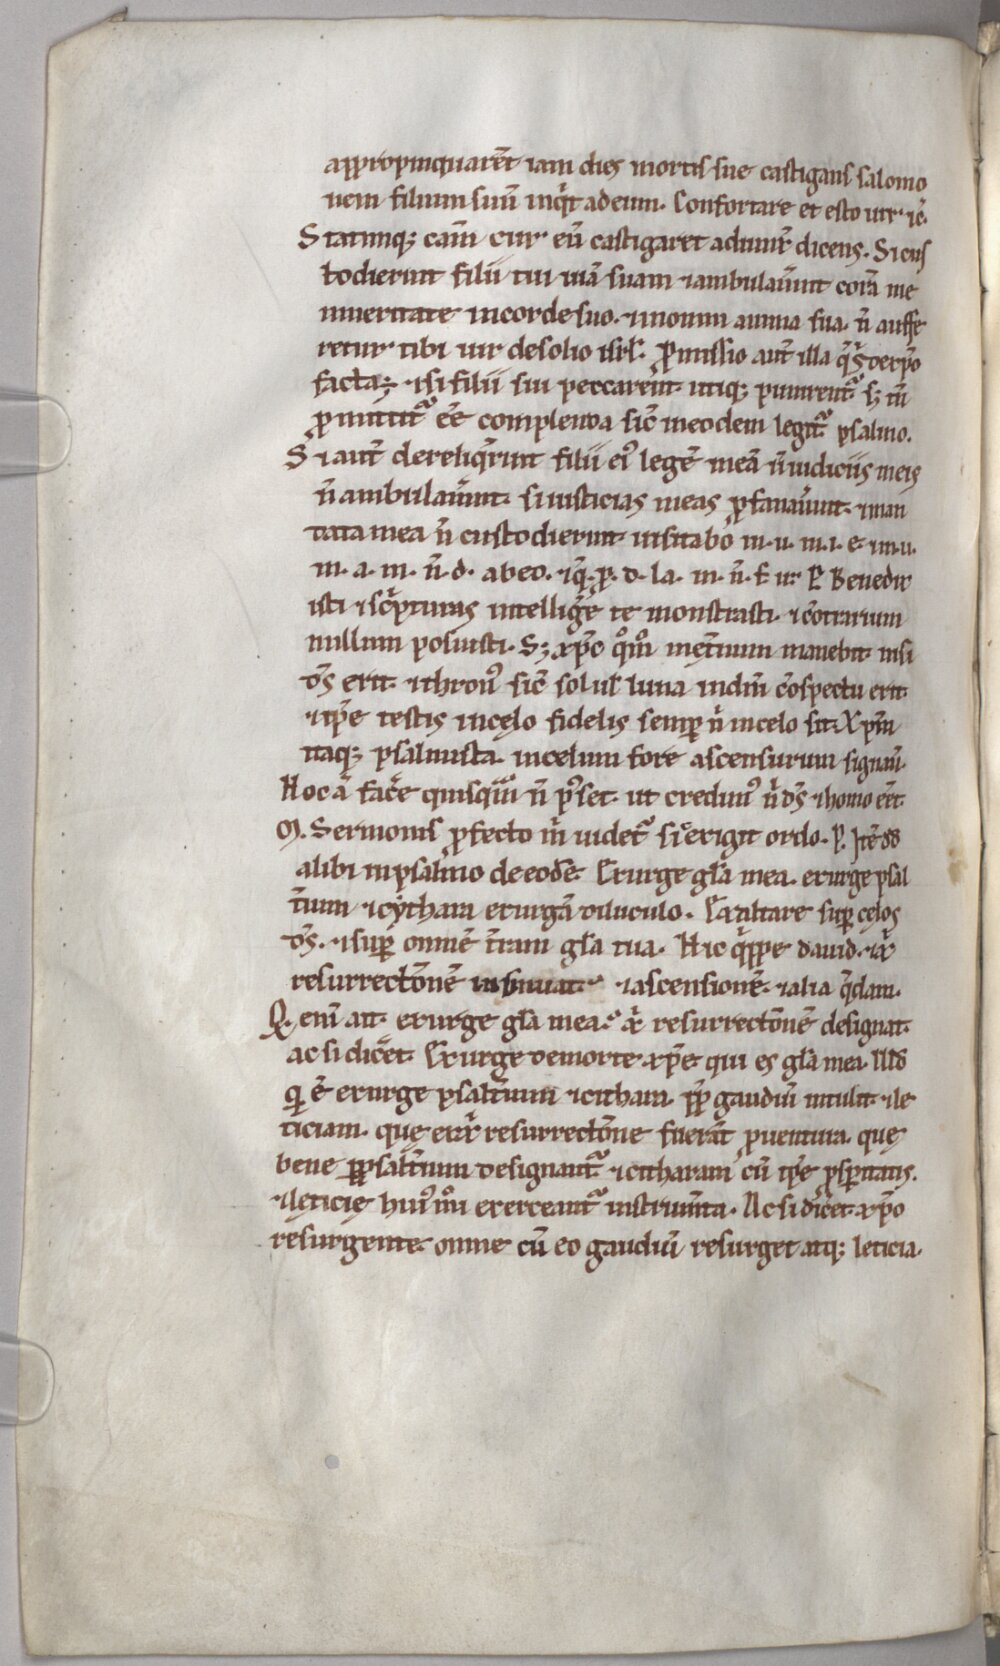 appropinquarēt iam dies mortis sue castigans salomo
nem filium suū inqͥt ad eum. Confortare et esto uir. ⁊c̄.
Statimq; cām cur eū castigaret adiunx̄ dicens. Si cus
todierint filii tui uiā suam ⁊ ambulaůint corā me
in ueritate in corde suo. ⁊ in omni anima sua. n̄ auffe
retur tibi uir de solio isrl̄. P̱missio aut̄ illa
facta ⁊ si filii sui peccarent. utiq; punirent᷑ s; tn̄
ꝓmittit᷑ eē complenda sic̄ in eodem legit᷑ psalmo.
Si aut̄ dereliqͥrint filii eiꝰ legē meā ⁊ in iudiciis meis
n̄ ambulaůint. si iusticias meas ꝓfanaůint. ⁊ man
data mea n̄ custodierint. uisitabo in. u. in. i. e. ⁊ in. u.
m. a. m. n̄. d. ab eo. ⁊ q̄. ꝓ. d. la. m. n̄. E Bene dix
isti ⁊ scͥpturas intelligͤe te monstrasti. ⁊ c̄trarium
nullum posuisti. S; xp̄c qͦm̄ in et̄num manebit. nisi
d̄s erit. ⁊ thronꝰ sic̄ sol ul̄ luna in dn̄i c̄spectu erit.
⁊ ip̄e testis in cęlo fidelis semꝑ n̄ in celo sit. Xp̄m
itaq; psalmista in celum fore ascensurum signauit.
Hoc aͣ facͤe quisqͣm n̄ p̱set. ut credimꝰ n̄ d̄s ⁊ homo eēt.
M. Sermonis ꝓfecto m̄ uidet᷑ si exigit ordo. P. Itē dd̄
alibi in psalmo de eodē. Exurge gl̄a mea. exurge psal
t̄ium ⁊ cythara exurgā diluculo. Exaltare suꝑ cęlos
d̄s. ⁊ suꝑ omnē t̄ram gl̄a tua. Hic qͥppe dauid. ⁊ xͥ
resurrectōnē insinuat. ⁊ ascensionē. ⁊ alia qͣdam.
Q. enī ait. exurge gl̄a mea. xͥ resurrectōnē designat.
ac si dicͤet. Exurge de morte xp̄e qui es gl̄a mea. Illd̄
qͥ ē exurge psalt̄ium ⁊ cithara. ꝓp̄ gaudiū intulit. ⁊ le
ticiam. quę ex xͥ resurrectōne fuerāt ꝓuentura. quę
bene ꝑ psalt̄ium designant᷑ ⁊ citharam cū ip̄e ꝓsꝑitatis.
⁊ lęticię huiꝰmōi exerceant᷑ instrum̄ta. Ac si dicͤet. xp̄o
resurgente. omne cū eo gaudiū resurget atq; leticia.